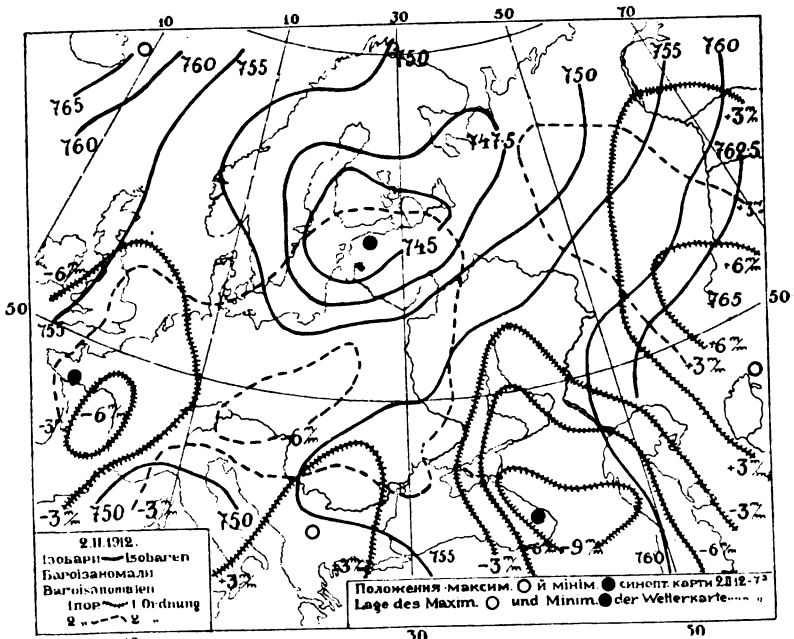 10 10 30 50 70
750
760 755
765
760
750
755 760
+3‰
7475
7625
745
-6‰
+6‰
765
50 50
755
+6‰
+3‰
-3
-6‰
-6‰
+3‰
-3‰ 750 -3‰ 750
-3‰
-9‰
755
-3‰
760 -6‰
+3‰ +3‰
2.II.1912.
Ізобари Isobaren
Бароізаномали
Baroisanomalen
1 пор. 1 Ordnung
2 „ 2 „
Положення максим. й мінім. синопт. карти 2.II 12-7ᵃ
Lage des Maxim. und Minim. der Wetterkarte
30 50